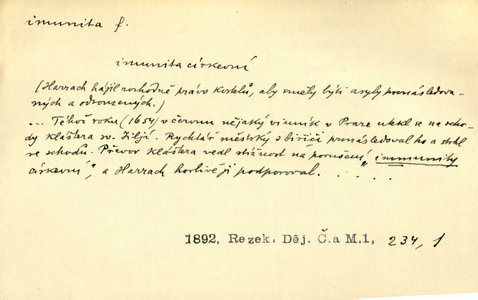 imunita f.
imunita církevní
(Harrach hájil rozhodně právo kostelů, aby směly býti asyly pronásledova-
ných a odsouzených.)
... Téhož roku (1654) v červnu nějaký vinník v Praze utekl se na scho-
dy kláštera sv. Jiljí. Rychtář městský s biřici pronásledoval ho a strhl
se schodů. Převor kláštera vedl stížnost na porušení „immunity
církevní", a Harrach horlivě ji podporoval. . . . .
1892, Rezek. Děj. Č. a M. 1, 234, 1